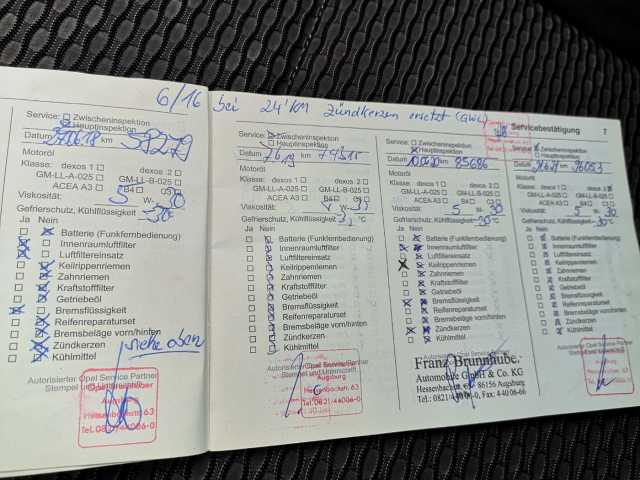 6/16 bei 24'KM Zündkerzen ersetzt (GWL)
Servicebestätigung 7
Service: Zwischeninspektion
Hauptinspektion
Datum km 58279
Motoröl
Klasse: dexos 1 dexos 2
GM-LL-A-025 GM-LL-B-025
ACEA A3 B4
Viskosität: 5 W- 30
Gefrierschutz, Kühlflüssigkeit -30°
Ja Nein
Batterie (Funkfernbedienung)
Innenraumluftfilter
Luftfiltereinsatz
Keilrippenriemen
Zahnriemen
Kraftstofffilter
Getriebeöl
Bremsflüssigkeit
Reifenreparaturset
Bremsbeläge vorn/hinten
Zündkerzen
Kühlmittel
siehe oben
Autorisierter Opel Service Partner
Stempel und
Hessenbachstr. 63
Tel. 0821/44006-0
Service: Zwischeninspektion
Hauptinspektion
Datum km
Motoröl
Klasse: dexos 1 dexos 2
GM-LL-A-025 GM-LL-B-025
ACEA A3 B4
Viskosität: W-
Gefrierschutz, Kühlflüssigkeit °C
Ja Nein
Batterie (Funkfernbedienung)
Innenraumluftfilter
Luftfiltereinsatz
Keilrippenriemen
Zahnriemen
Kraftstofffilter
Getriebeöl
Bremsflüssigkeit
Reifenreparaturset
Bremsbeläge vorn/hinten
Zündkerzen
Kühlmittel
Autorisierter Opel Service Partner
Stempel und Unterschrift
Augsburg
Hessenbachstr. 63
Tel. 0821/44006-0
Service: Zwischeninspektion
Hauptinspektion
Datum km 85686
Motoröl
Klasse: dexos 1 dexos 2
GM-LL-A-025 GM-LL-B-025
ACEA A3 B4
Viskosität: 5 W- 30
Gefrierschutz, Kühlflüssigkeit -30 °C
Ja Nein
Batterie (Funkfernbedienung)
Innenraumluftfilter
Luftfiltereinsatz
Keilrippenriemen
Zahnriemen
Kraftstofffilter
Getriebeöl
Bremsflüssigkeit
Reifenreparaturset
Bremsbeläge vorn/hinten
Zündkerzen
Kühlmittel
Franz Brunnhube.
Automobile GmbH & Co. KG
Hessenbachstr. 63, 86156 Augsburg
Tel.: 0821/44006-0, Fax: 440 06 66
Service: Zwischeninspektion
Hauptinspektion
Datum km 96053
Motoröl
Klasse: dexos 1 dexos 2
GM-LL-A-025 GM-LL-B-025
ACEA A3 B4
Viskosität: 5 W- 30
Gefrierschutz, Kühlflüssigkeit -30 °C
Ja Nein
Batterie (Funkfernbedienung)
Innenraumluftfilter
Luftfiltereinsatz
Keilrippenriemen
Zahnriemen
Kraftstofffilter
Getriebeöl
Bremsflüssigkeit
Reifenreparaturset
Bremsbeläge vorn/hinten
Zündkerzen
Kühlmittel